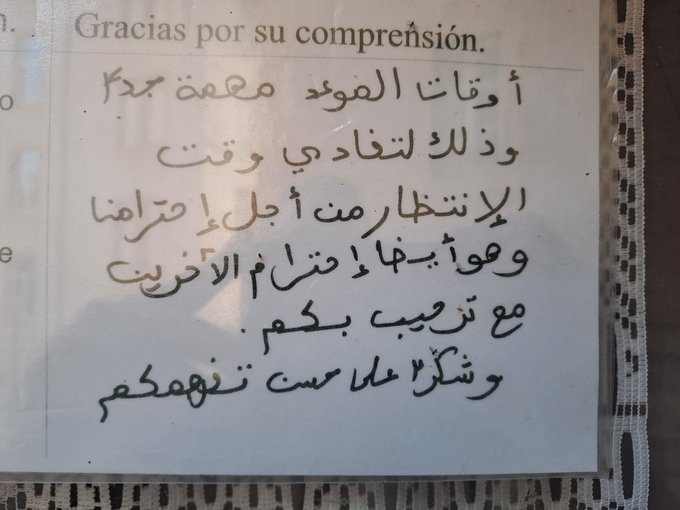 n.
Gracias por su comprensión.
أوقات الموعد مهمة جدا
o
وذلك لتفادي وقت
الإنتظار من أجل إحترامنا
e
وهو أيضا إحترام الآخرين
مع ترحيب بكم.
وشكرًا على حسن تفهمكم